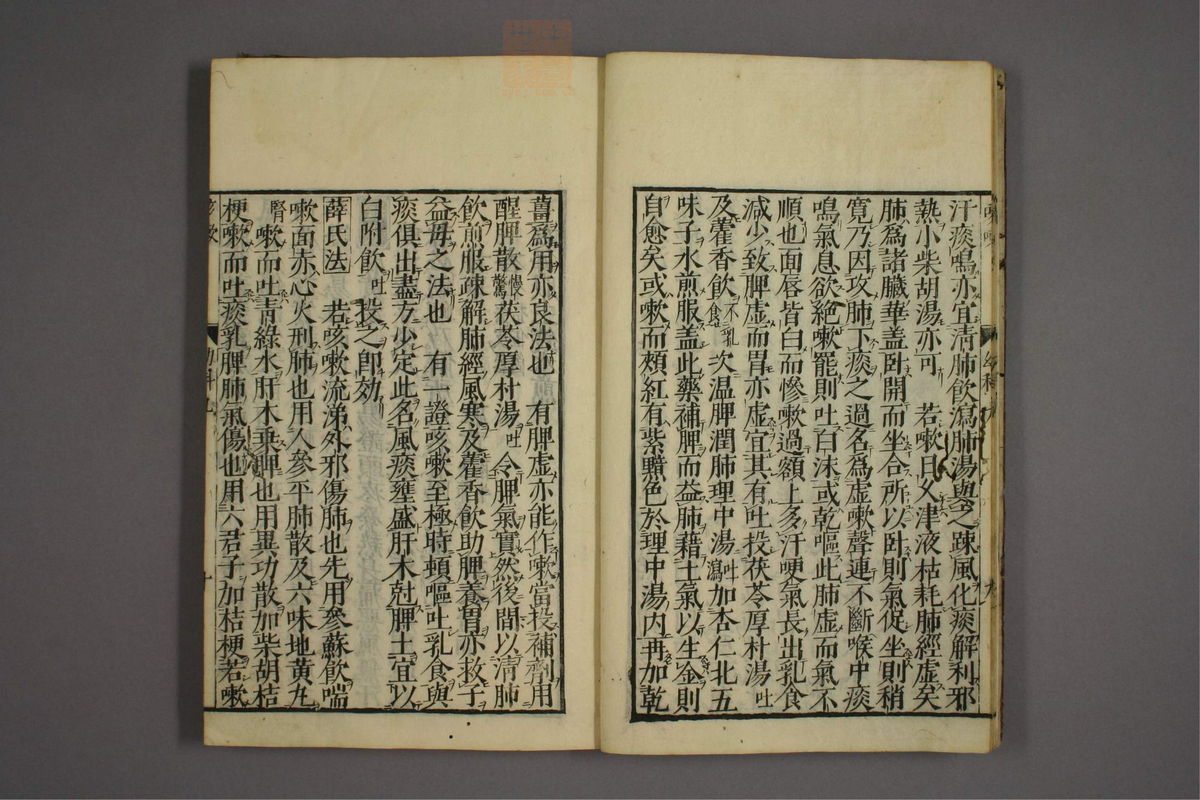 汗痰鳴亦宜清肺飲瀉肺湯與之踈風化痰解利邪
熱小柴胡湯亦可 若嗽日久津液枯耗肺經虛矣
肺爲諸臟華盖卧開而坐合所以卧則氣促坐則稍
寛乃因攻肺下痰之過名爲虛嗽聲連不斷喉中痰
鳴氣息欲絶嗽罷則吐白沫或乾嘔此肺虛而氣不
順也面唇皆白而慘嗽過額上多汗哽氣長出乳食
減少致脾虛而胃亦虛宜其有吐投茯苓厚朴湯吐
及藿香飲不乳食次温脾潤肺理中湯吐瀉加杏仁北五
味子水煎服盖此藥補脾而益肺藉土氣以生金則
自愈矣或嗽而頰紅有紫黯色於理中湯内再加乾
薑爲用亦良法也 有脾虛亦能作嗽當投補劑用
醒脾散慢驚茯苓厚朴湯吐 令脾氣實然後間以清肺
飲煎服疎解肺經風寒及藿香飲助脾養胃亦救子
益母之法也 有一證咳嗽至極時頓嘔吐乳食與
痰俱出盡方少定此名風痰壅盛肝木尅脾土宜以
白附飲吐投之卽効
薛氏法 若咳嗽流涕外邪傷肺也先用參蘇飲喘
嗽面赤心火刑肺也用人參平肺散及六味地黄丸
腎 嗽而吐青綠水肝木乗脾也用異功散加柴胡桔
梗嗽而吐痰乳脾肺氣傷也用六君子加桔梗若嗽